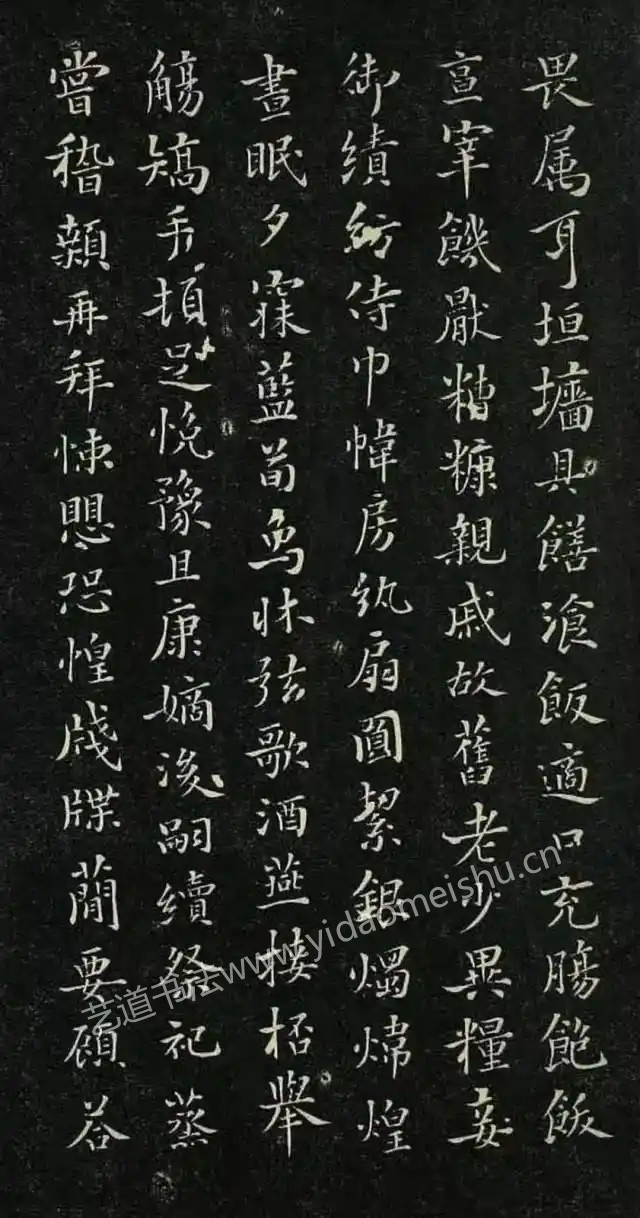 畏属耳垣墻具饍湌飯適口充膓飽飯
烹宰飢猒糟糠親戚故舊老少異糧妾
御績紡侍巾幃房紈扇圓絜銀燭煒煌
晝眠夕寐藍筍象牀弦歌酒燕接杯舉
觴矯手頓足悅豫且康嫡後嗣續祭祀蒸
嘗稽顙再拜悚愳恐惶牋牒蕳要顧荅
艺道书法www.yidaomeishu.cn